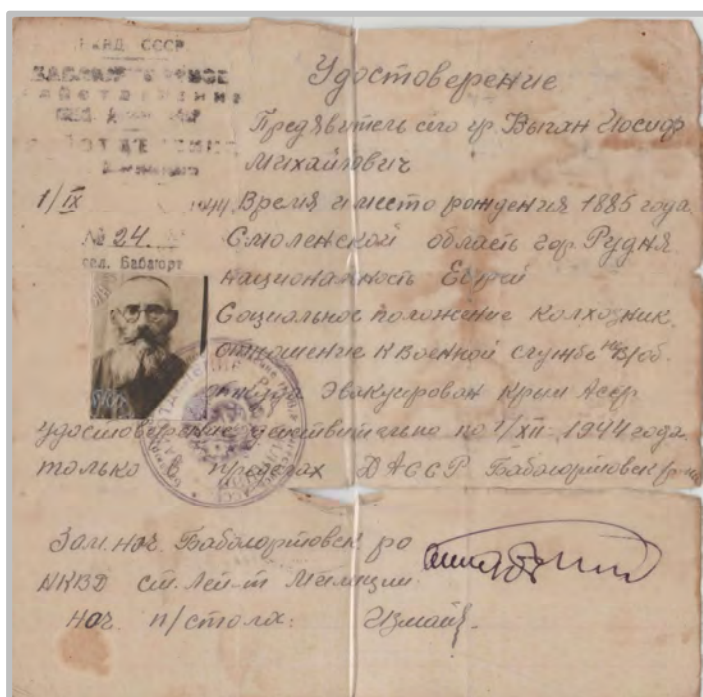 НКВД СССР
1/IX 1944
№ 24
сел. Бабаюрт
Удостоверение
Предявитель сего гр. Выган Иосиф
Михайлович
Время и место рождения 1885 года
Смоленской область гор. Рудня
национальность Еврей
Социальное положение колхозник.
отношение к военной службе н/об.
откуда Эвакуирован Крым Асср
удостоверение действительно по 1/XII-1944 года
только в пределах ДАССР Бабаюртовск р-на
Зам. нач. Бабаюртовск ро
НКВД ст. лей-т милиции
Нач. п/стола: